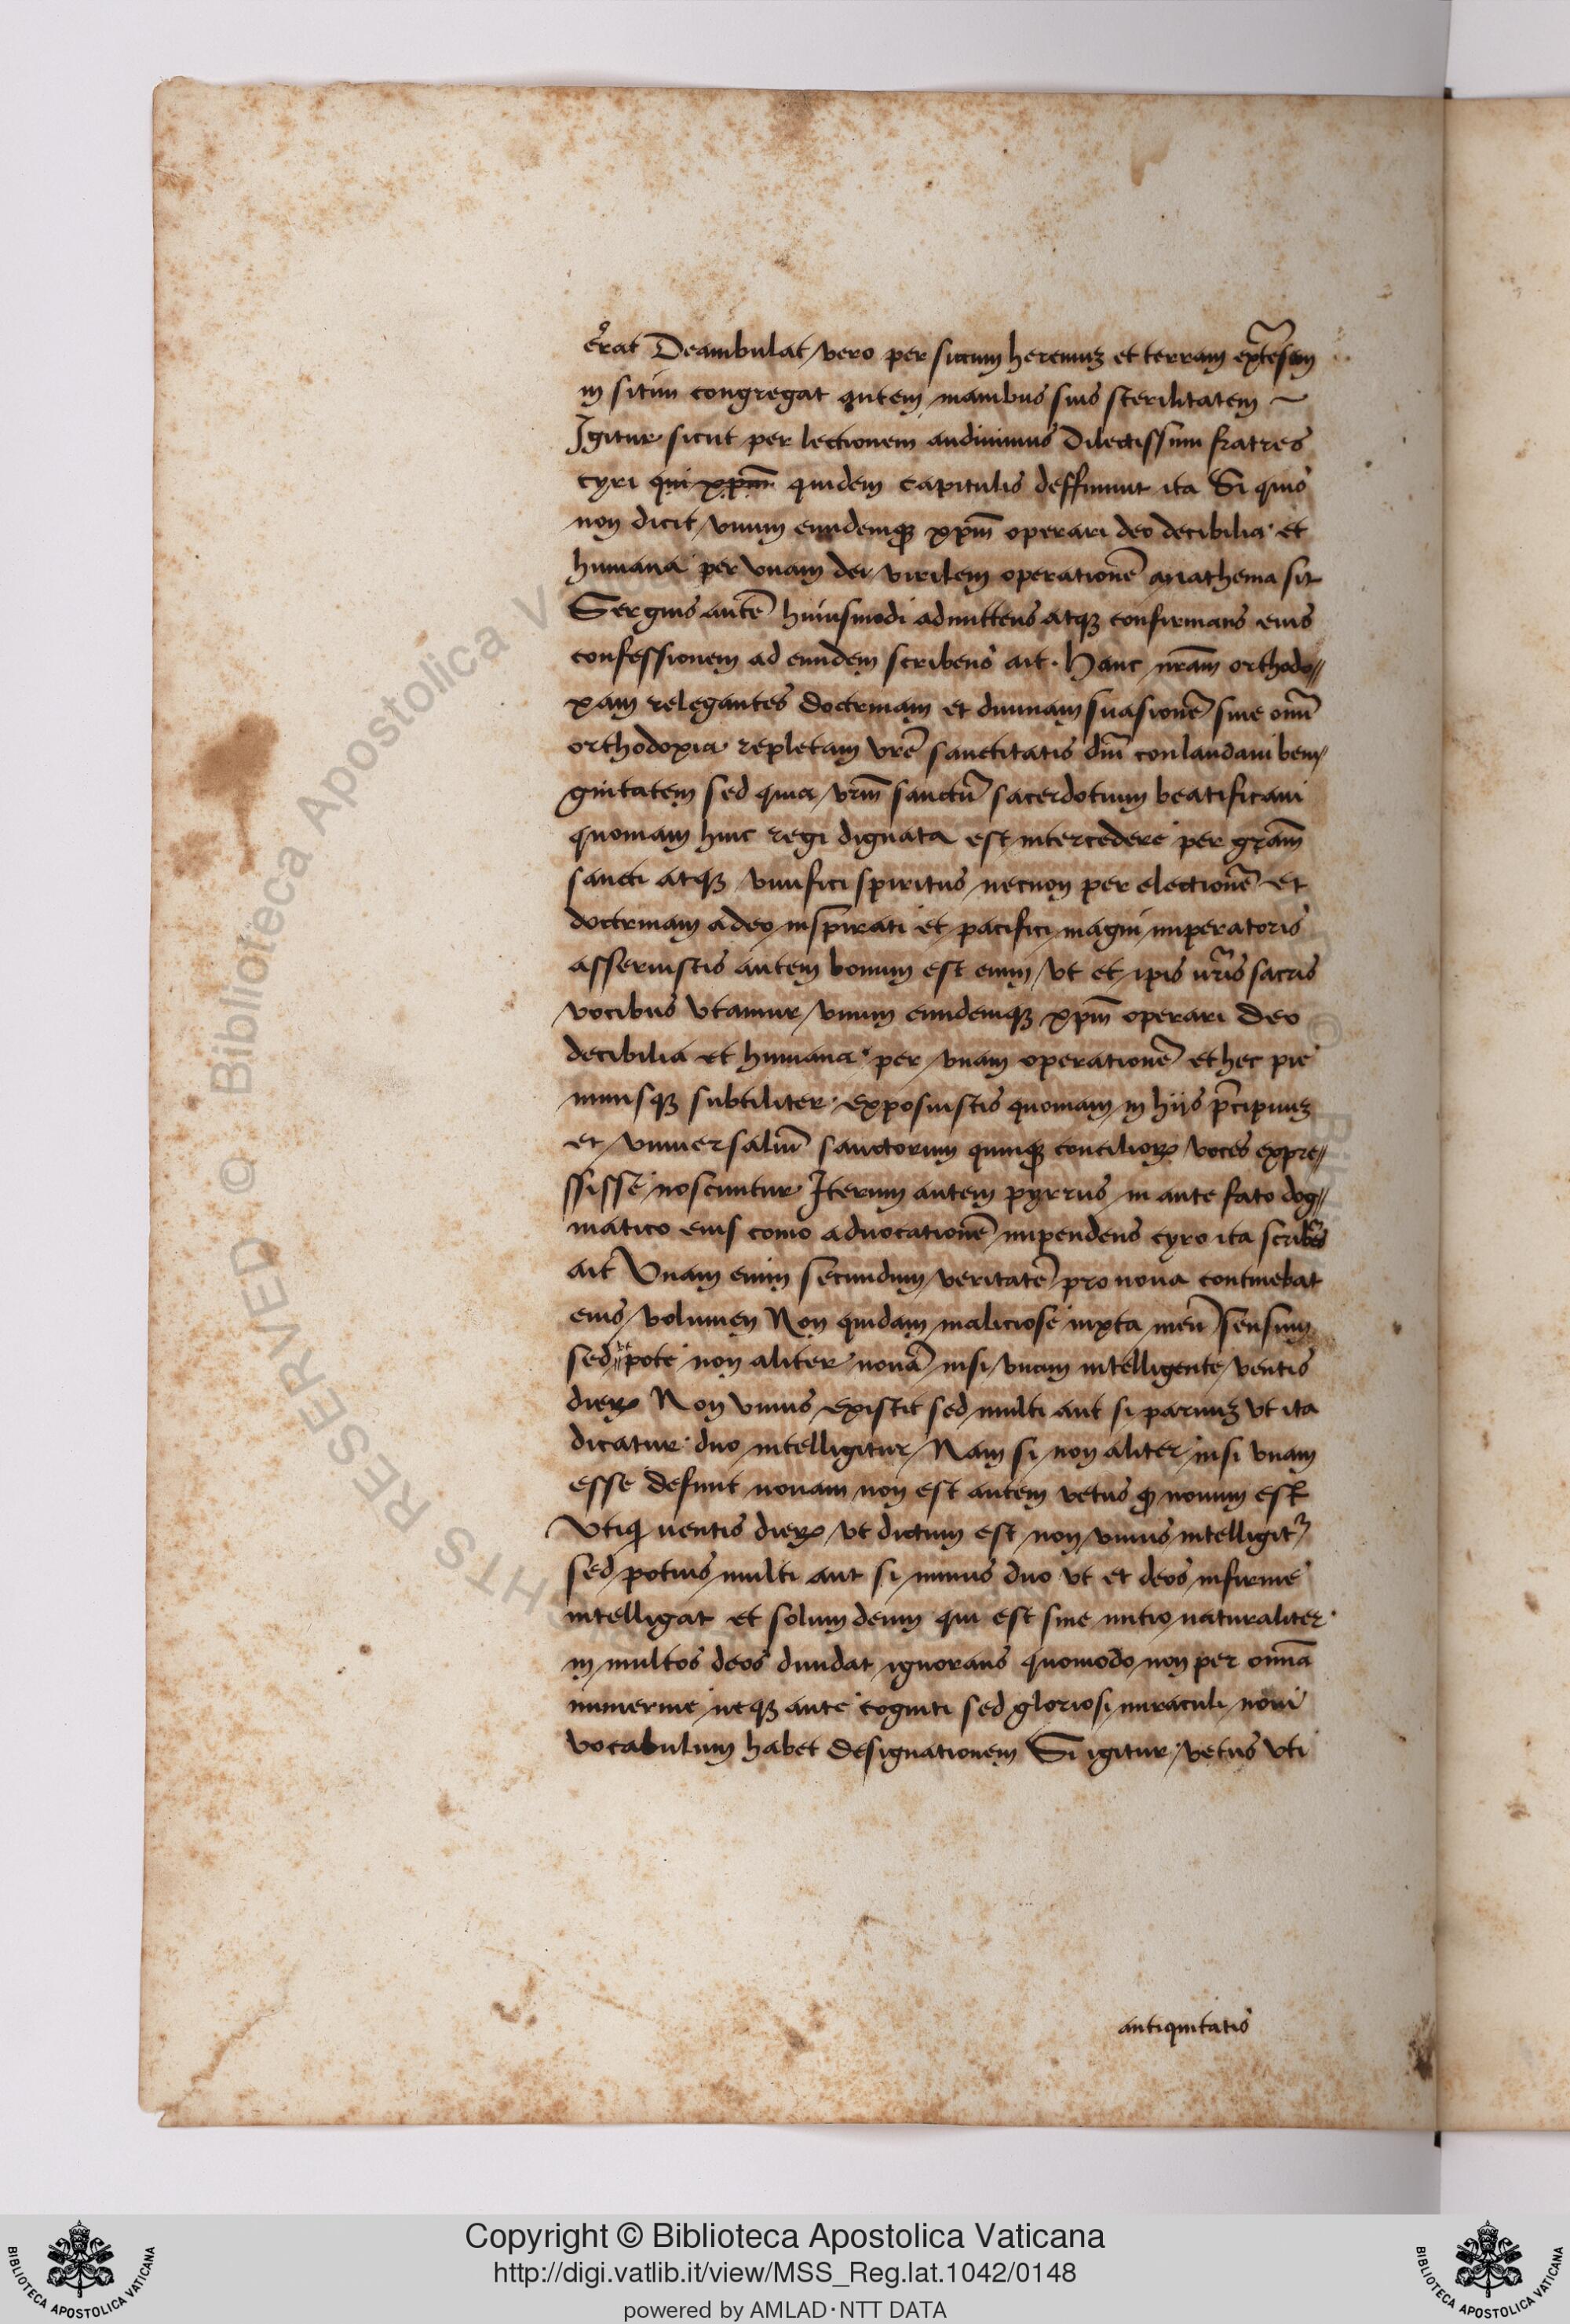 erat Deambulat vero per siccum heremuz et terram extēsam
in sitim congregat autem manibus suis sterilitatem ~
Igitur sicut per lectionem audiuimus Dilectissimi fratres
cyri qui xpm̄ quidem capitulis deffiniuit ita Si quis
non dicit vnum eundemqꝫ xpm̄ operari deo decibilia et
humana per vnam dei virilem operationē anathema sit
Sergius autē huiusmodi admittens atqꝫ confirmans eius
confessionem ad eundem scribens ait. Hanc nrām orthodo//
xam relegantes doctrinam et diuinam suasionē siue omī
orthodoxia repletam vrē sanctitatis dīu conlaudaui beni//
gnitatem sed quia vrm̄ sanctū sacerdotium beatificaui
quoniam huic regi dignata est intercedere per grām
sancti atqꝫ viuifici spiritus necnon per electionē et
doctrinam a deo inspirati et pacifici magni imperatoris
asseruistis autem bonum est enim vt et ipis vrīs sacris
vocibus vtamur vnum eundemqꝫ xpm̄ operari Deo
decibilia et humana per vnam operationē et hec pie
nimisqꝫ subtiliter exposuistis quoniam in hijs p̄cipuuz
et vniuersaliū sanctorum quinqꝫ conciliorꝝ voces expre//
ssisse noscuntur Iterum autem pyrrus in ante fato dog//
matico eius tomo aduocationē impendens cyro ita scribēs
ait Vnam enim secundum veritatē pro noua continebat
eius volumen Non quidam maliciose iuxta meū sensum
sed vt pote non aliter nouā nisi vnam intelligente ventis
dierꝝ Non vnius existit sed multi aut si paruuz vt ita
dicatur duo intelligitur Nam si non aliter nisi vnam
esse defiuit nouam non est autem vetus qꝫ nouum est
Vtiqꝫ uentis dierꝝ vt dictum est non vnius intelligitʳ
sed potius multi aut si minus duo vt et deos infirme
intelligat et solum deum qui est sine initio naturaliter
in multos deos diuidat ignorans quomodo non per omīa
numerine neqꝫ ante cogniti sed gloriosi miraculi noui
vocabulum habet designationem Si igitur vetus vti
antiquitatis
© Biblioteca Apostolica V
RIGHTS RESERVED
Copyright © Biblioteca Apostolica Vaticana
http://digi.vatlib.it/view/MSS_Reg.lat.1042/0148
powered by AMLAD·NTT DATA
BIBLIOTECA APOSTOLICA VATICANA
BIBLIOTECA APOSTOLICA VATICANA